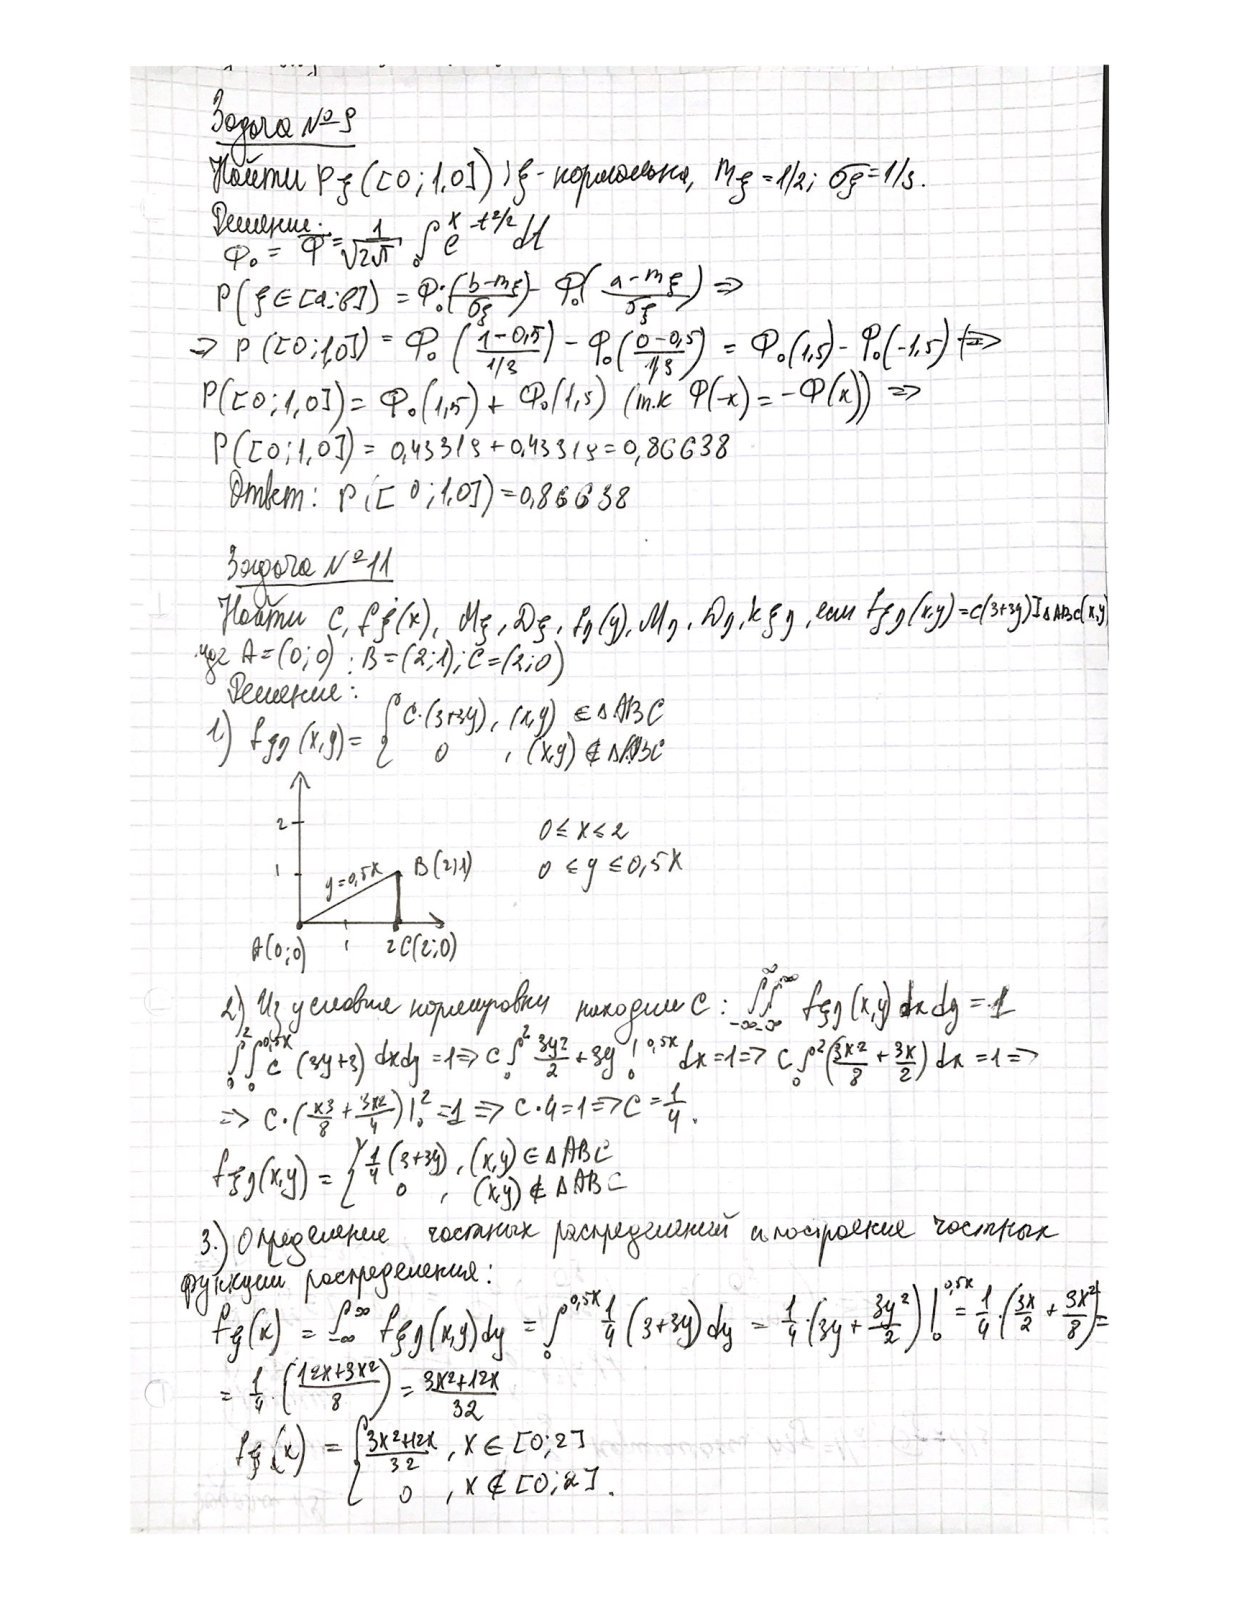 Задача №9
Найти Pξ([0;1,0]), ξ-нормальна, mξ=1/2; σξ=1/3.
Решение:
Φ₀ = Φ = 1/√2π ∫₀ˣ e^(-t²/2) dt
P(ξ∈[a;b]) = Φ₀((b-mξ)/σξ) - Φ₀((a-mξ)/σξ) ⇒
⇒ P([0;1,0]) = Φ₀((1-0,5)/(1/3)) - Φ₀((0-0,5)/(1/3)) = Φ₀(1,5) - Φ₀(-1,5) ⇒
P([0;1,0]) = Φ₀(1,5) + Φ₀(1,5) (т.к Φ(-x) = -Φ(x)) ⇒
P([0;1,0]) = 0,43319 + 0,43319 = 0,86638
Ответ: P([0;1,0]) = 0,86638
Задача №11
Найти C, fξ(x), Mξ, Dξ, fη(y), Mη, Dη, kξη, если fξη(x,y) = c(3+3y)I△ABC(x,y)
где A=(0;0); B=(2;1); C=(2;0)
Решение:
1) fξη(x,y) = { C·(3+3y), (x,y) ∈ △ABC
0, (x,y) ∉ △ABC
2
0 ≤ x ≤ 2
1
y=0,5x
B(2;1)
0 ≤ y ≤ 0,5x
A(0;0)
1
2
C(2;0)
2) Из условия нормировки находим C: ∫_{-∞}^{∞}∫_{-∞}^{∞} fξη(x,y) dxdy = 1
∫₀²∫₀^{0,5x} c(3y+3) dxdy = 1 ⇒ C∫₀² 3y²/2 + 3y |₀^{0,5x} dx = 1 ⇒ C∫₀² (3x²/8 + 3x/2) dx = 1 ⇒
⇒ C·(x³/8 + 3x²/4)|₀² = 1 ⇒ C·4 = 1 ⇒ C = 1/4.
fξη(x,y) = { 1/4 (3+3y), (x,y) ∈ △ABC
0, (x,y) ∉ △ABC
3.) Определение частных распределений и построение частных
функции распределения:
fξ(x) = ∫_{-∞}^{∞} fξη(x,y)dy = ∫₀^{0,5x} 1/4 (3+3y)dy = 1/4·(3y + 3y²/2)|₀^{0,5x} = 1/4·(3x/2 + 3x²/8) =
= 1/4·((12x+3x²)/8) = (3x²+12x)/32
fξ(x) = { (3x²+12x)/32, x ∈ [0;2]
0, x ∉ [0;2].